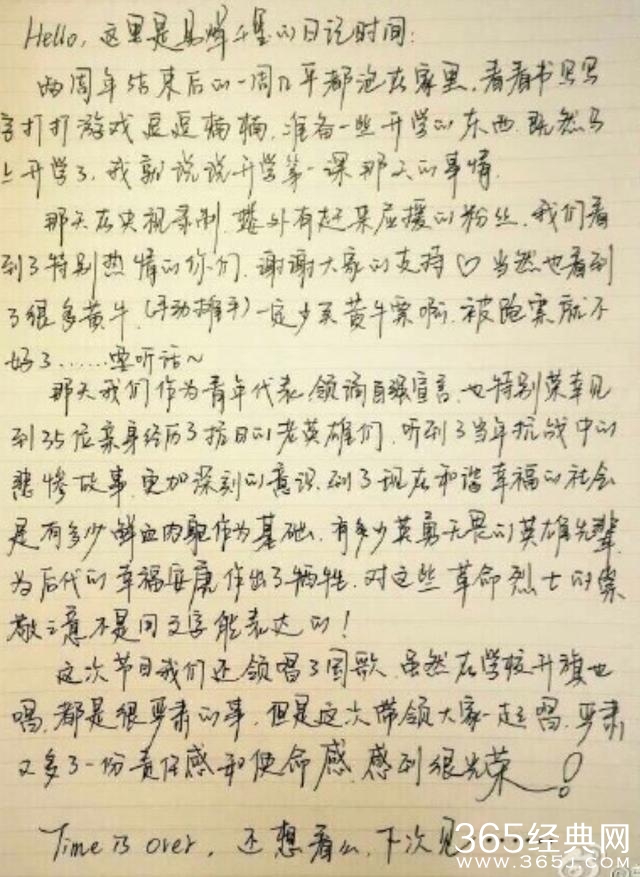 Hello, 这里是易烊千玺的日记时间:
两周年结束后的一周几乎都泡在家里,看看书写写
字打打游戏逗逗楠楠,准备一些开学的东西.既然马
上开学了,我就说说开学第一课那天的事情.
那天在央视录制,楼外有赶来应援的粉丝,我们看
到了特别热情的你们,谢谢大家的支持♡当然也看到
了很多黄牛(手动挥手)一定少买黄牛票啊,被跑票就不
好了……要听话~
那天我们作为青年代表,领诵自强宣言,也特别荣幸见
到35位亲身经历了抗日的老英雄们,听到了当年抗战中的
悲惨故事,更加深刻的意识到了现在和谐幸福的社会
是有多少鲜血肉躯作为基础,有多少英勇无畏的英雄先辈
为后代的幸福安康作出了牺牲.对这些革命烈士的崇
敬之意不是用文字能表达的!
这次节目我们还领唱了国歌,虽然在学校升旗也
唱,都是很严肃的事,但是这次带领大家一起唱,严肃
又多了一份责任感和使命感,感到很光荣!
Time is over, 还想看么,下次见
365经典网
www.365J.com